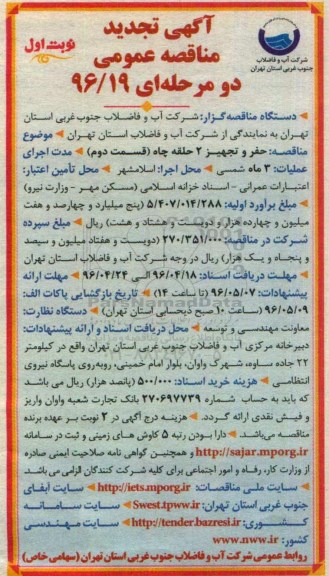 آگهی تجدید
مناقصه عمومی
دو مرحله‌ای ۹۶/۱۹
نوبت اول
شرکت آب و فاضلاب
جنوب غربی استان تهران
دستگاه مناقصه‌گزار: شرکت آب و فاضلاب جنوب غربی استان
تهران به نمایندگی از شرکت آب و فاضلاب استان تهران موضوع
مناقصه: حفر و تجهیز ۲ حلقه چاه (قسمت دوم) مدت اجرای
عملیات: ۳ ماه شمسی محل اجرا: اسلامشهر محل تأمین اعتبار:
اعتبارات عمرانی - اسناد خزانه اسلامی (مسکن مهر - وزارت نیرو)
مبلغ برآورد اولیه: ۵/۴۰۷/۰۱۴/۲۸۸ (پنج میلیارد و چهارصد و هفت
میلیون و چهارده هزار و دویست و هشتاد و هشت) ریال مبلغ سپرده
شرکت در مناقصه: ۲۷۰/۳۵۱/۰۰۰ (دویست و هفتاد میلیون و سیصد
و پنجاه و یک هزار) ریال در وجه شرکت آب و فاضلاب استان تهران
مهلت دریافت اسناد: ۹۶/۰۴/۱۸ الی ۹۶/۰۴/۲۴ مهلت ارائه
پیشنهادات: ۹۶/۰۵/۰۷ (تا ساعت ۱۴) تاریخ بازگشایی پاکات الف:
۹۶/۰۵/۰۹ (ساعت ۱۰ صبح ذیحجابی استان تهران) دستگاه نظارت:
معاونت مهندسی و توسعه محل دریافت اسناد و ارائه پیشنهادات:
دبیرخانه مرکزی آب و فاضلاب جنوب غربی استان تهران واقع در کیلومتر
۲۲ جاده ساوه، شهرک واوان، بلوار امام خمینی، روبه‌روی پاسگاه نیروی
انتظامی هزینه خرید اسناد: ۵۰۰/۰۰۰ (پانصد هزار) ریال می باشد
که باید به حساب شماره ۲۷۰۶۹۷۷۳۹ بانک تجارت شعبه واوان واریز
و فیش نقدی ارائه گردد. هزینه درج آگهی در ۲ نوبت بر عهده برنده
مناقصه می‌باشد. دارا بودن رتبه ۵ کاوش های زمینی و ثبت در سامانه
http://sajar.mporg.ir و همچنین گواهی نامه صلاحیت ایمنی صادره
از وزارت کار، رفاه و امور اجتماعی برای کلیه شرکت کنندگان الزامی می باشد.
سایت ملی مناقصات: http://iets.mporg.ir سایت آبفای
جنوب غربی استان تهران: Swest.tpww.ir سایت سامانه
کشوری: http://tender.bazresi.ir سایت مهندسی
کشور: www.nww.ir
روابط عمومی شرکت آب و فاضلاب جنوب غربی استان تهران (سهامی خاص)